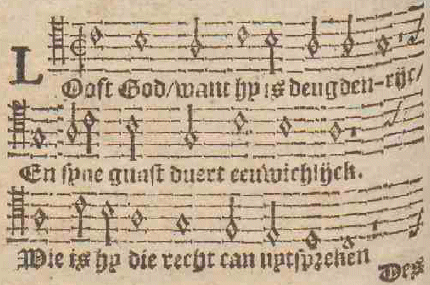 LOoft God/want hy is deugden-rijc/
En sijne gunst duert eeuwichlijck.
Wie is hy die recht can uytspreken
Des